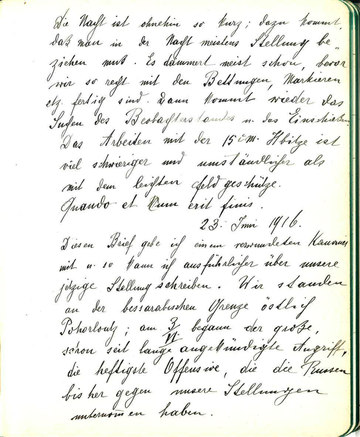 Die Nacht ist ohnehin so kurz; dazu kommt,
daß man in der Nacht meistens Stellung be-
ziehen muß. Es dämmert meist schon, bevor
wir so recht mit den Bettungen, Markieren
etz. fertig sind. Dann kommt wieder das
Suchen des Beobachtstandes u. das Einschießen.
Das Arbeiten mit der 15 c.m. Hbitze ist
viel schwieriger und umständlicher als
mit dem leichten Feldgeschütze.
Quando et cum erit finis.
23. Juni 1916.
Diesen Brief gebe ich einem verwundeten Kanonier
mit u. so kann ich ausführlicher über unsere
jetzige Stellung schreiben. Wir standen
an der bessarabischen Grenze östlich
; am 3/VI begann der große,
schon seit lange angekündigte Angriff,
die heftigste Offensive, die die Russen
bisher gegen unsere Stellungen
unternommen haben.